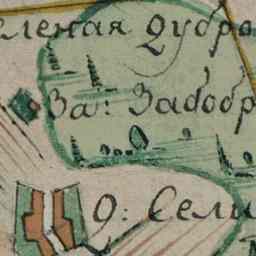 еленая дубро
За: Забобр
О: Сели